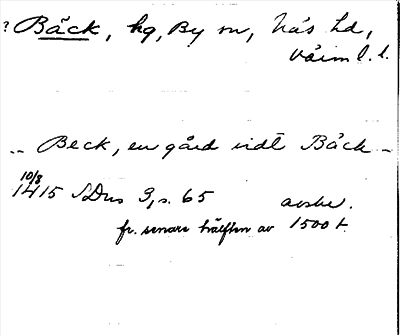 ? Bäck, hg, By sn, Näs hd,
Värml. l.
.. Beck, en gård vidt Bäck ..
10/8
1415 SDns 3, s. 65 avskr.
fr. senare hälften av 1500 t.